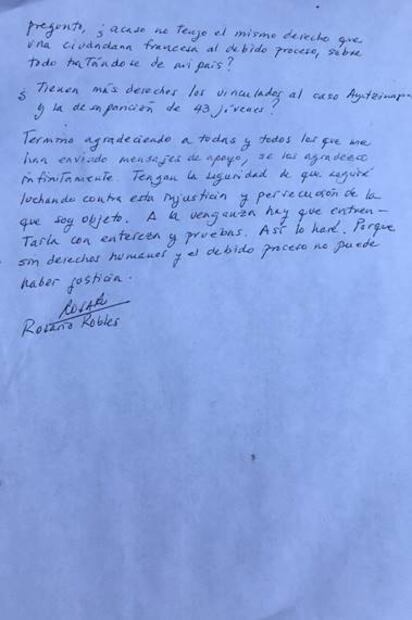 pregunto, ¿acaso no tengo el mismo derecho que
una ciudadana francesa al debido proceso, sobre
todo tratándose de mi país?
¿Tienen más derechos los vinculados al caso Ayotzinapa
y la desaparición de 43 jóvenes?
Termino agradeciendo a todas y todos los que me
han enviado mensajes de apoyo, se los agradezco
infinitamente. Tengan la seguridad de que seguiré
luchando contra esta injusticia y persecución de la
que soy objeto. A la venganza hay que enfren-
tarla con entereza y pruebas. Así lo haré. Porque
sin derechos humanos y el debido proceso no puede
haber justicia.
Rosario
Rosario Robles